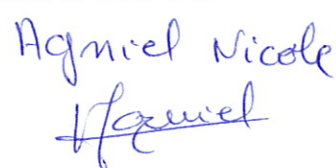 Agniel Nicole
Nagniel